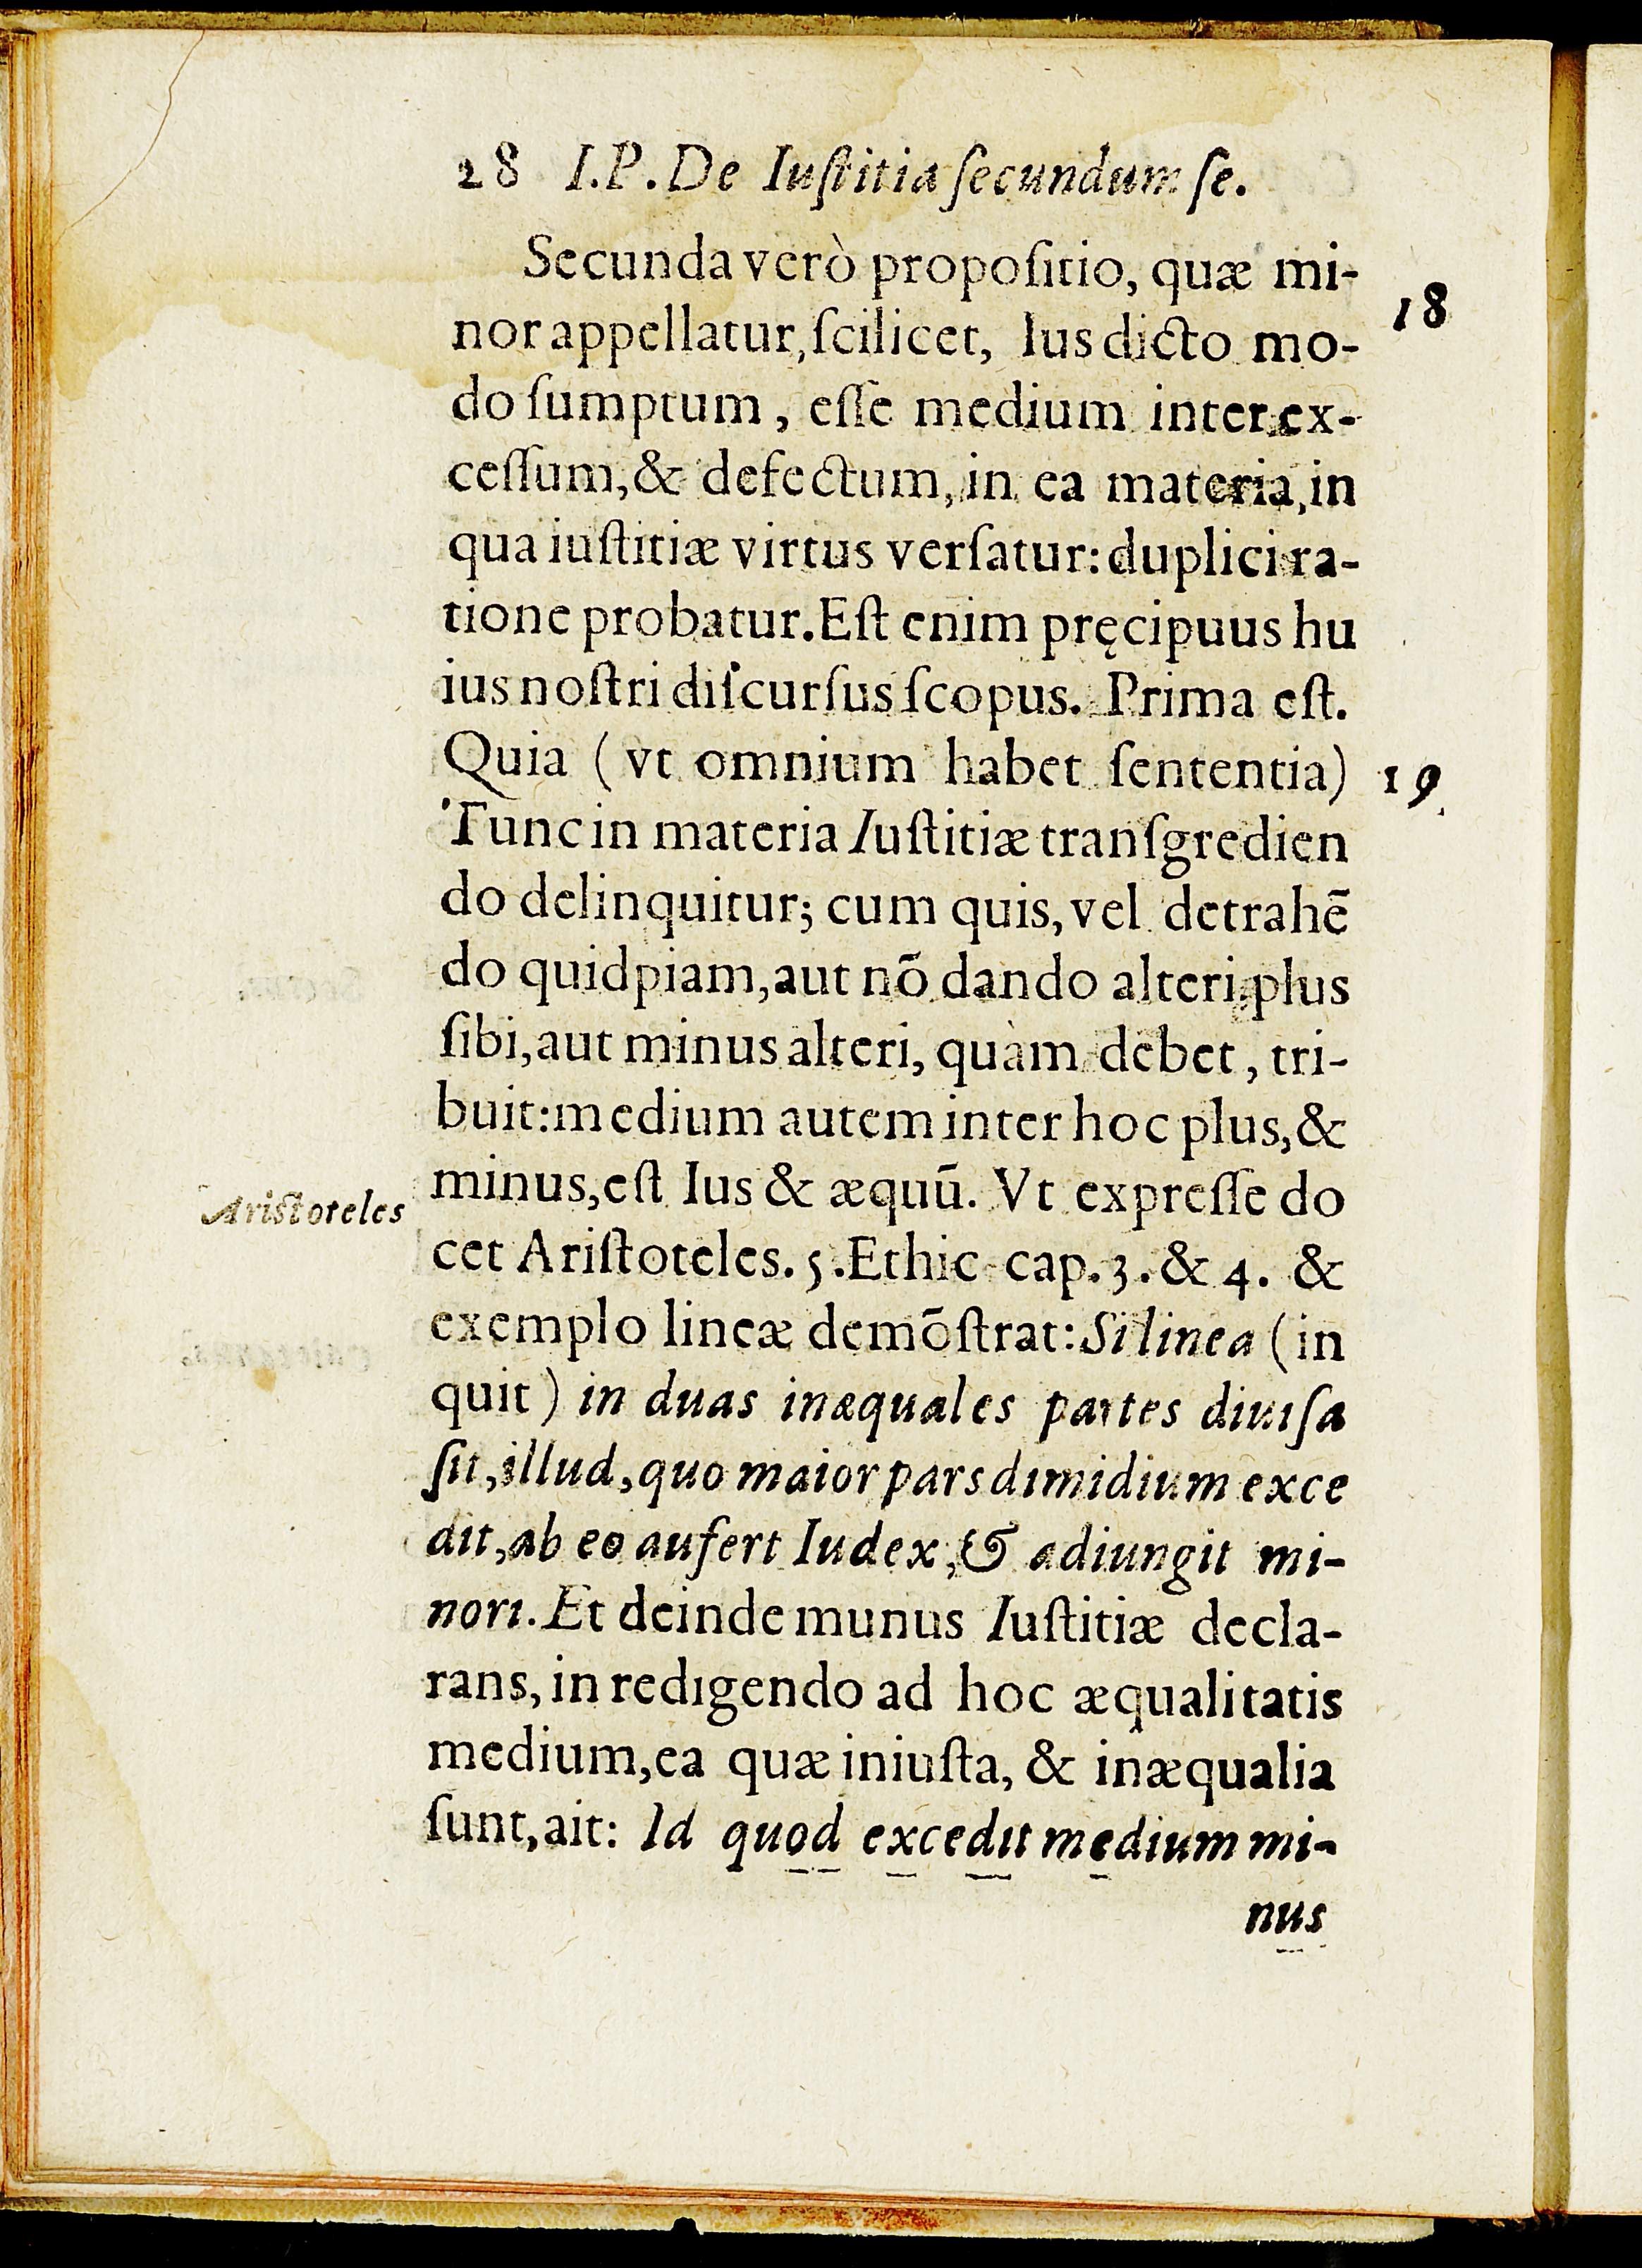 28 I.P. De Iuſtitia ſecundum ſe.
Secunda verò propoſitio, quæ mi-
18
nor appellatur, ſcilicet, Ius dicto mo-
do ſumptum, eſſe medium inter ex-
ceſſum, & defectum, in ea materia, in
qua iuſtitiæ virtus verſatur: duplici ra-
tione probatur. Eſt enim pręcipuus hu
ius noſtri diſcurſus ſcopus. Prima eſt.
Quia (vt omnium habet ſententia)
19
Tunc in materia Iuſtitiæ tranſgredien
do delinquitur; cum quis, vel detrahẽ
do quidpiam, aut nõ dando alteri plus
ſibi, aut minus alteri, quàm debet, tri-
buit: medium autem inter hoc plus, &
minus, eſt Ius & æquũ. Vt expreſſe do
Ariſtoteles
cet Ariſtoteles. 5. Ethic cap. 3. & 4. &
exemplo lineæ demõſtrat: Si linea (in
quit) in duas inæquales partes diuiſa
ſit, illud, quo maior pars dimidium exce
dit, ab eo aufert Iudex, & adiungit mi-
nori. Et deinde munus Iuſtitiæ decla-
rans, in redigendo ad hoc æqualitatis
medium, ea quæ iniuſta, & inæqualia
ſunt, ait: Id quod excedit medium mi-
nus